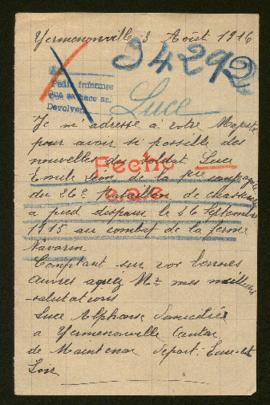 Yermenonville 3 Août 1916
34292
Pedir informes
que se hace en
Devolver
Luce
Je m'adresse à votre Majesté
pour avoir si possible des
nouvelles du soldat Luce
Fecho
Emile Léon de la compagnie
du 26e Bataillon de chasseurs
à pied disparu le 26 septembre
1915 au combat de la ferme
Navarin
Comptant sur vos bonnes
œuvres agréez Mr mes meilleurs
salutations
Luce Alphonse
à Yermenonville Canton
de Maintenon départ. Eure-et
Loir